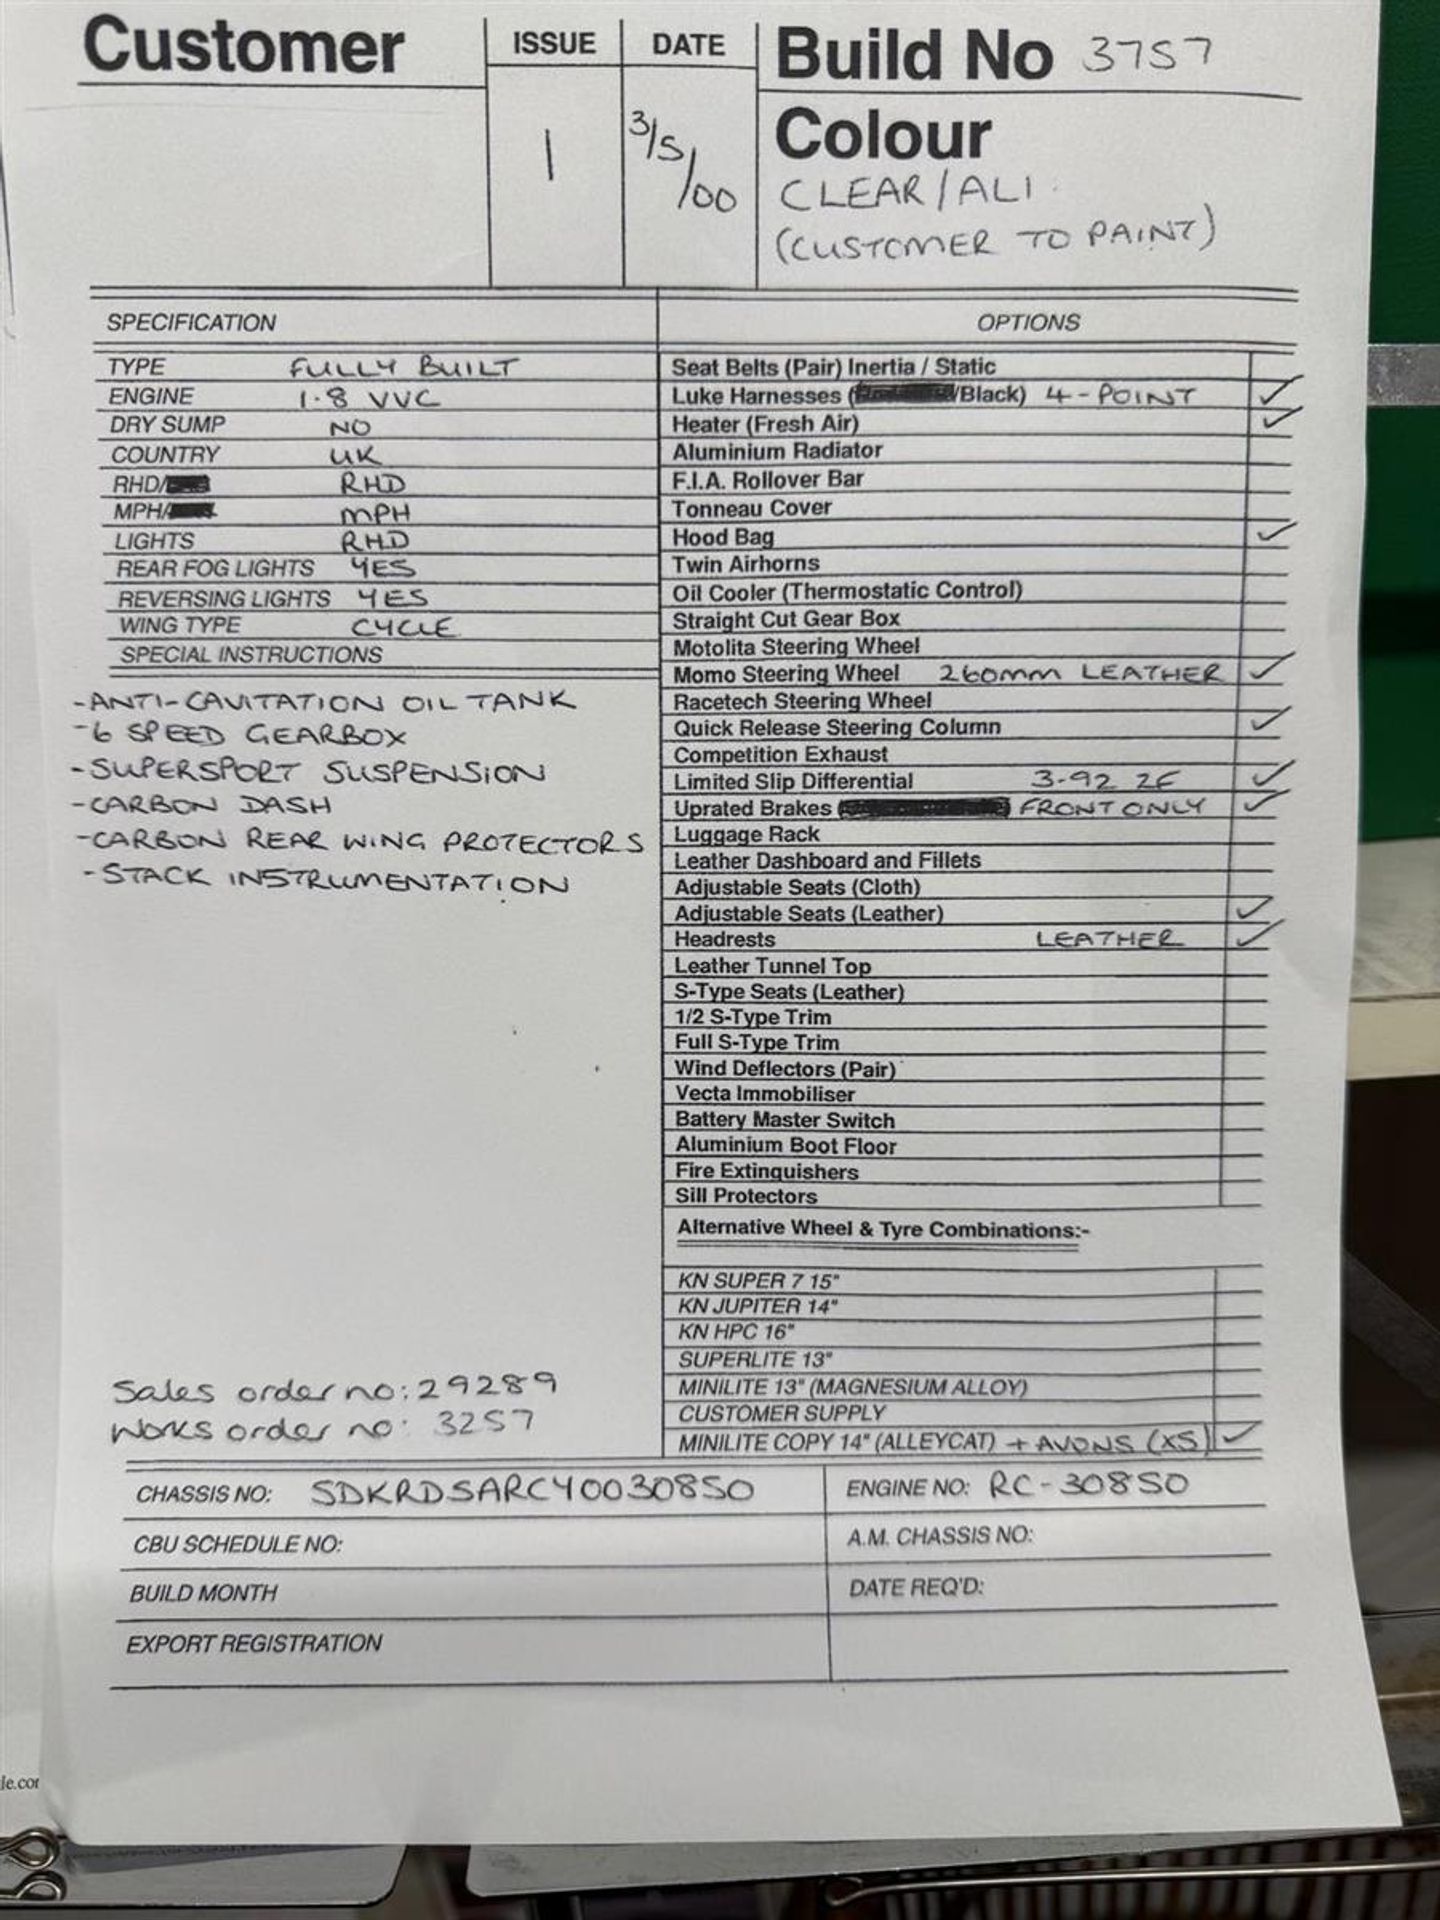 Customer
ISSUE
DATE
Build No 3757
1
3/5/00
Colour
CLEAR/ALI
(CUSTOMER TO PAINT)
SPECIFICATION
OPTIONS
TYPE FULLY BUILT
ENGINE 1.8 VVC
DRY SUMP NO
COUNTRY UK
RHD/ RHD
MPH/ MPH
LIGHTS RHD
REAR FOG LIGHTS YES
REVERSING LIGHTS YES
WING TYPE CYCLE
SPECIAL INSTRUCTIONS
-ANTI-CAVITATION OIL TANK
-6 SPEED GEARBOX
-SUPERSPORT SUSPENSION
-CARBON DASH
-CARBON REAR WING PROTECTORS
-STACK INSTRUMENTATION
Sales order no: 29289
Works order no: 3257
Seat Belts (Pair) Inertia / Static
Luke Harnesses ( /Black) 4-POINT ✓
Heater (Fresh Air) ✓
Aluminium Radiator
F.I.A. Rollover Bar
Tonneau Cover
Hood Bag ✓
Twin Airhorns
Oil Cooler (Thermostatic Control)
Straight Cut Gear Box
Motolita Steering Wheel
Momo Steering Wheel 260mm LEATHER ✓
Racetech Steering Wheel
Quick Release Steering Column ✓
Competition Exhaust
Limited Slip Differential 3-92 ZF ✓
Uprated Brakes ( ) FRONT ONLY ✓
Luggage Rack
Leather Dashboard and Fillets
Adjustable Seats (Cloth)
Adjustable Seats (Leather) ✓
Headrests LEATHER ✓
Leather Tunnel Top
S-Type Seats (Leather)
1/2 S-Type Trim
Full S-Type Trim
Wind Deflectors (Pair)
Vecta Immobiliser
Battery Master Switch
Aluminium Boot Floor
Fire Extinguishers
Sill Protectors
Alternative Wheel & Tyre Combinations:-
KN SUPER 7 15"
KN JUPITER 14"
KN HPC 16"
SUPERLITE 13"
MINILITE 13" (MAGNESIUM ALLOY)
CUSTOMER SUPPLY
MINILITE COPY 14" (ALLEYCAT) + AVONS (X5) ✓
CHASSIS NO: SDKRDSARCY0030850
ENGINE NO: RC-30850
CBU SCHEDULE NO:
A.M. CHASSIS NO:
BUILD MONTH
DATE REQ'D:
EXPORT REGISTRATION
le.cor